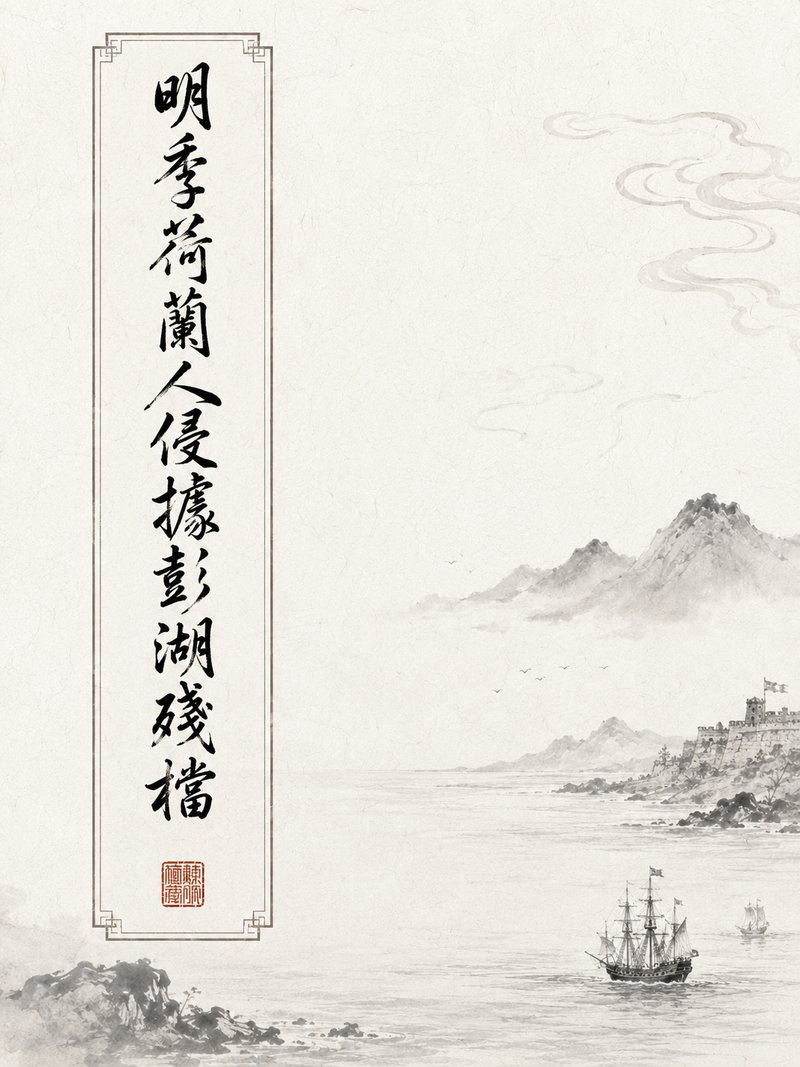 明季荷蘭人侵據彭湖殘檔